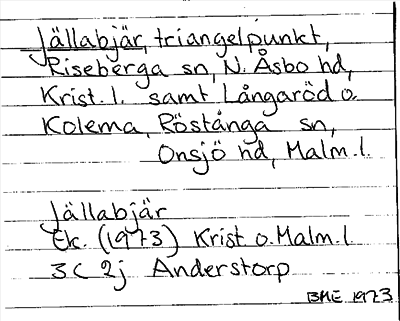 Jällabjär, triangelpunkt,
Riseberga sn, N. Åsbo hd,
Krist. l. samt Långaröd o.
Kolema, Röstånga sn,
Onsjö hd, Malm. l.
Jällabjär
Ek. (1973) Krist o. Malm. l
3C 2j Anderstorp
BME 1973